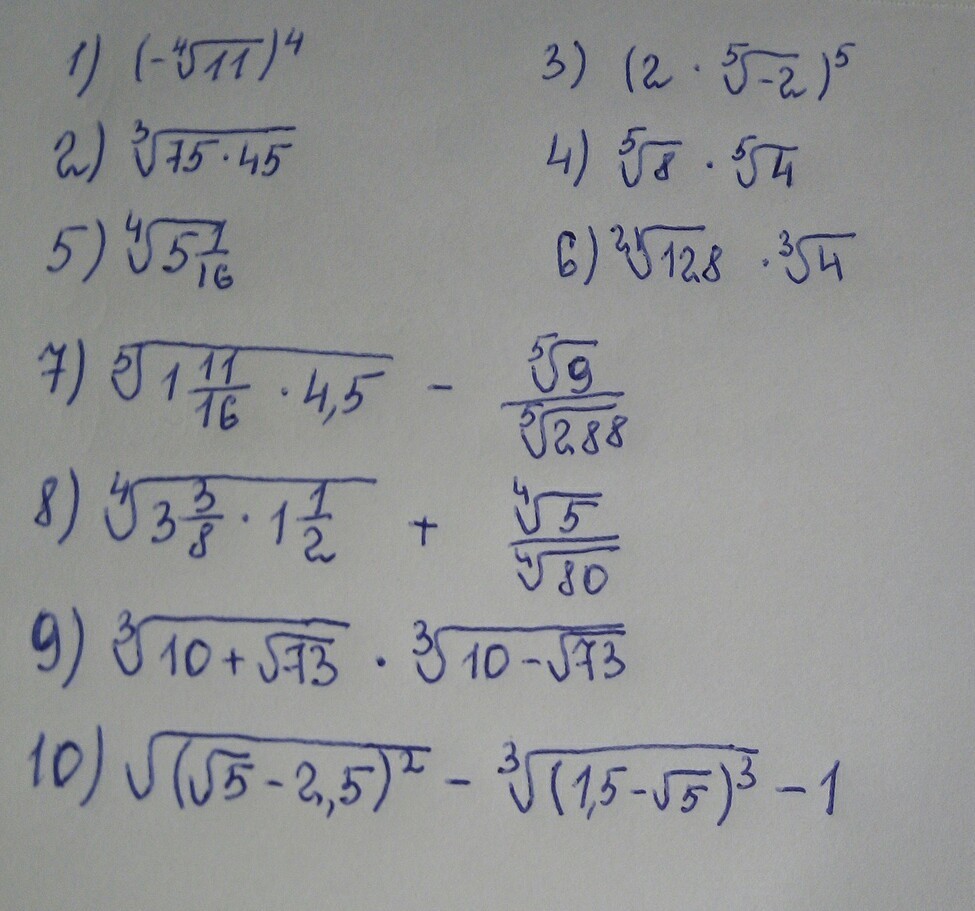 1) (-∜11)⁴ 3) (2 · ⁵√-2)⁵
2) ∛75·45 4) ⁵√8 · ⁵√4
5) ∜5 1/16 6) ∛128 · ∛4
7) ⁵√1 11/16 · 4,5 - ⁵√9/⁵√288
8) ∜3 3/8 · 1 1/2 + ∜5/∜80
9) ∛10+√73 · ∛10-√73
10) √(√5-2,5)² - ∛(1,5-√5)³ - 1